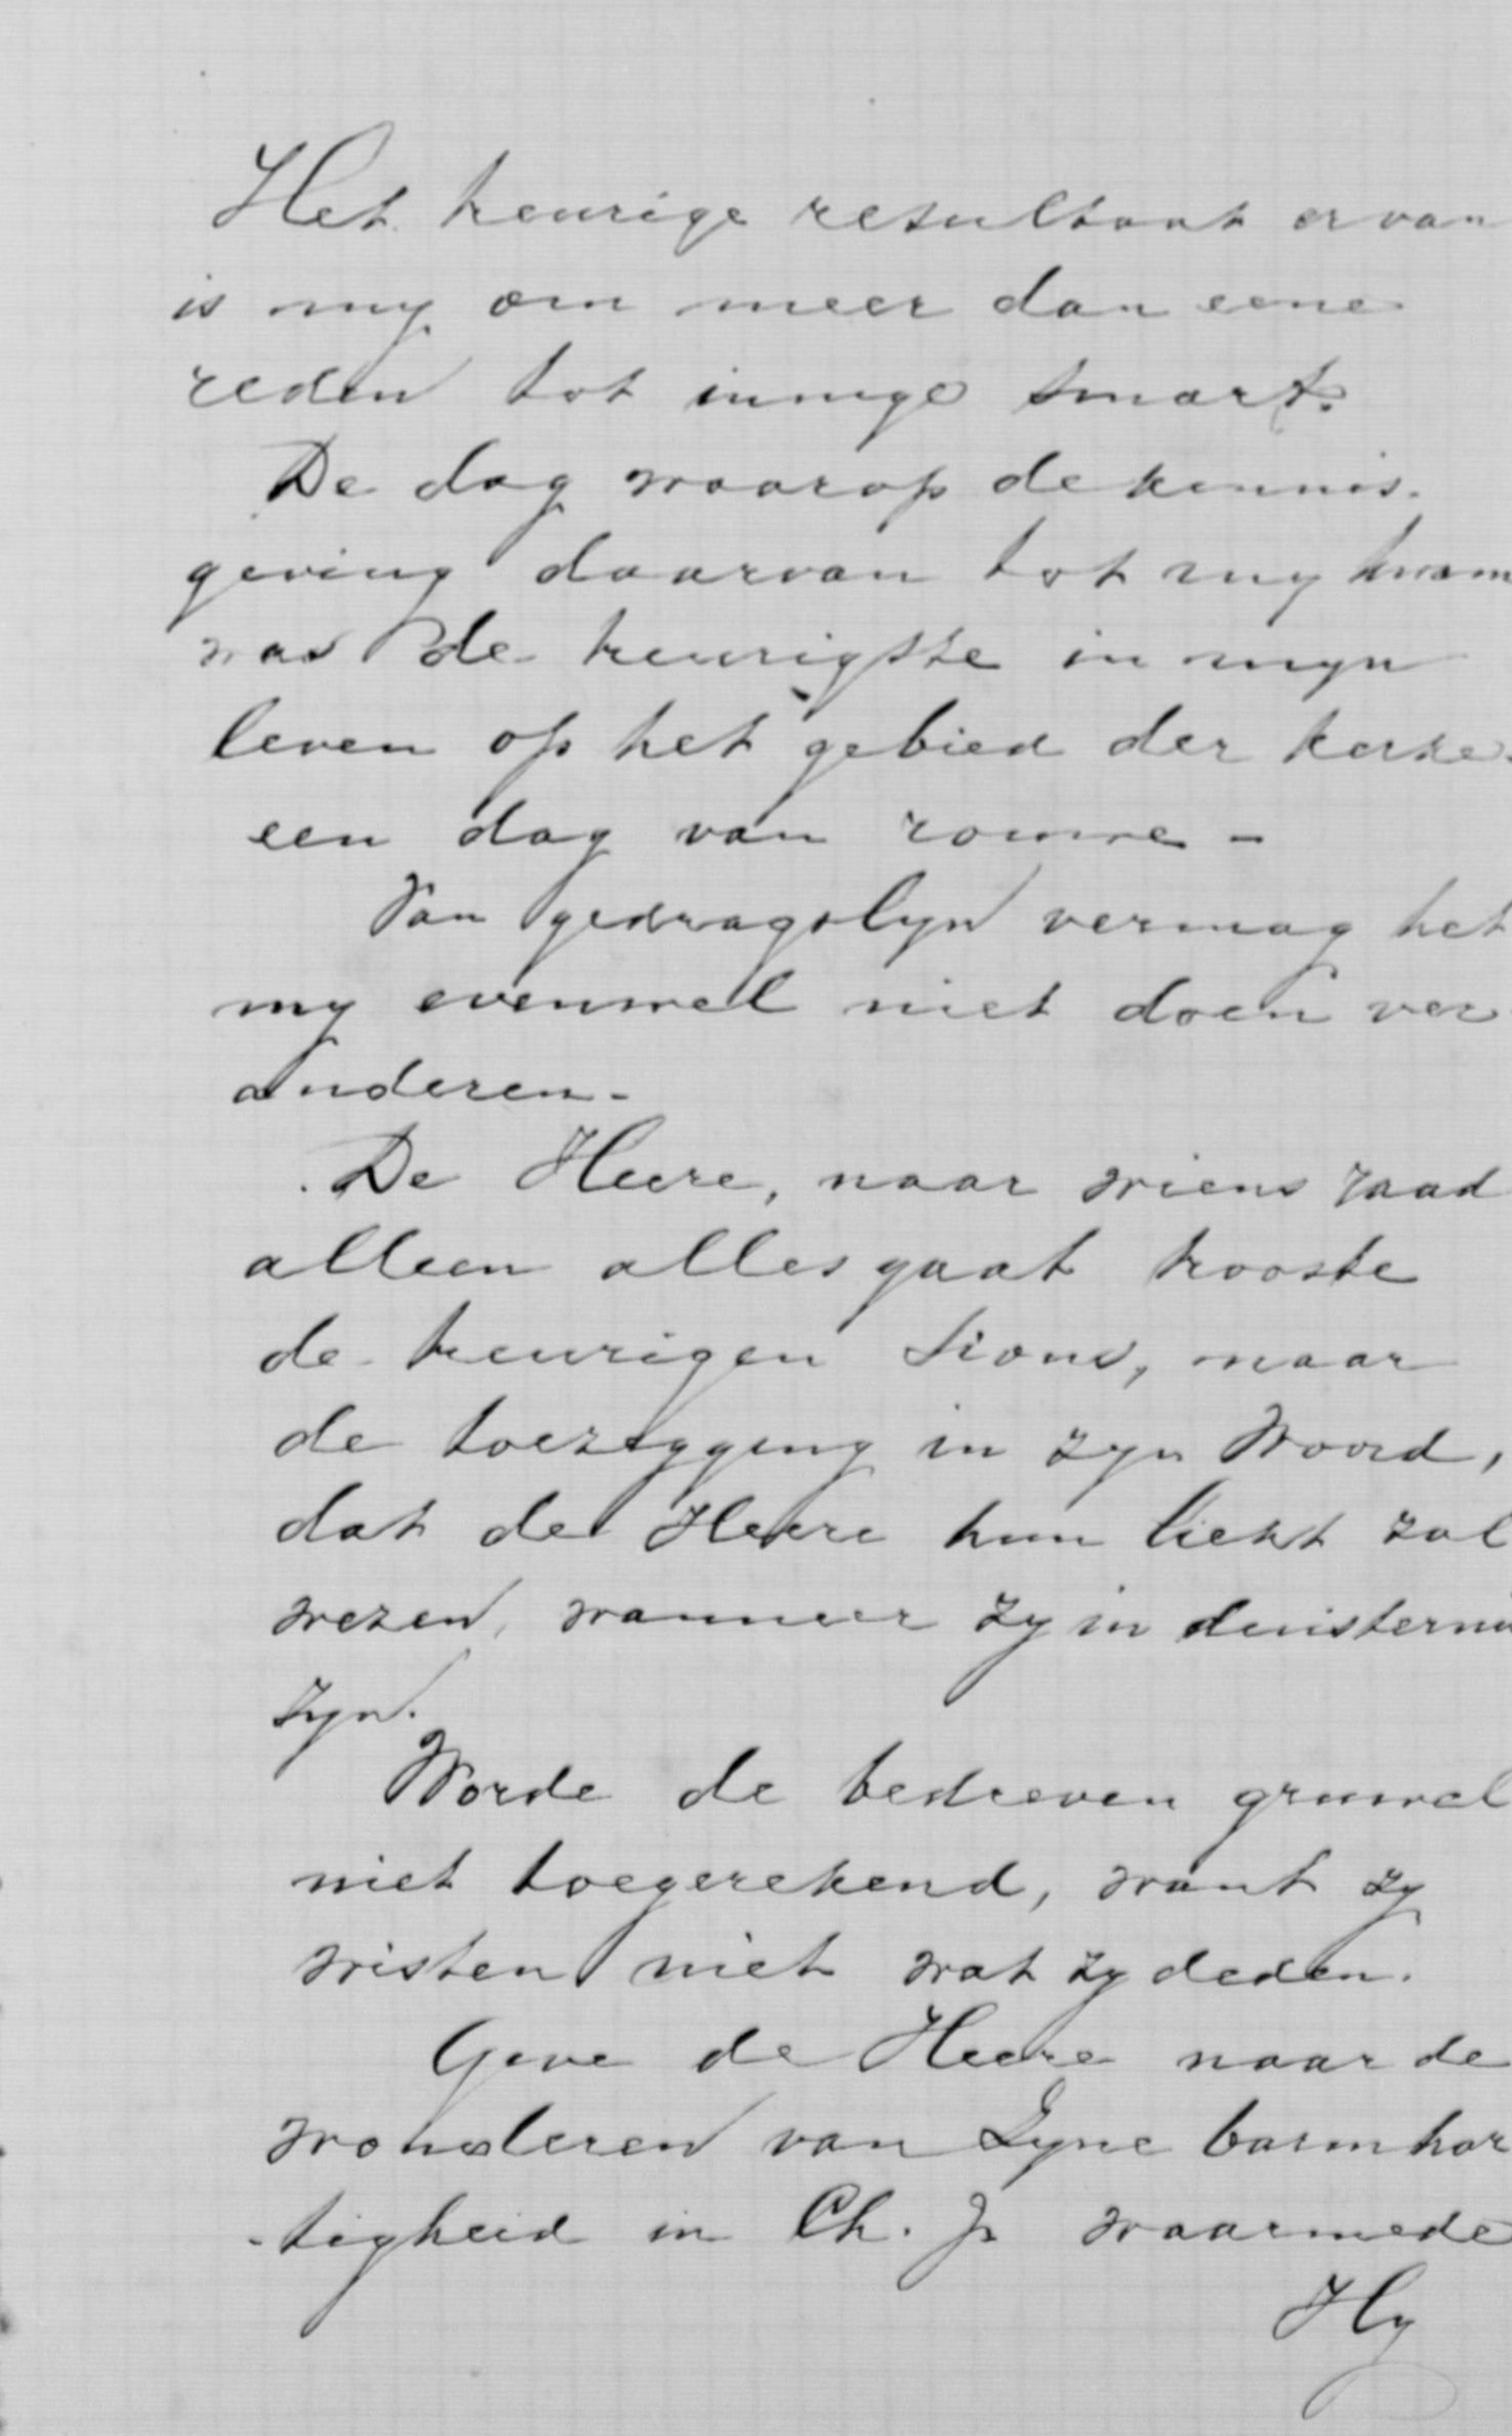 Het treurige resultaat ervan
is my om meer dan eene
reden tot innige smart.
De dag waarop de kennis-
geving daarvan tot my kwam
was de treurigste in myn
leven op het gebied der kerke.
een dag van rouwe -
Van gedragslyn vermag het
my evenwel niet doen ver
anderen.
De Heere, naar wiens raad
alleen alles gaat trooste
de treurigen Sions, naar
de toezegging in zyn Woord,
dat de Heere hun licht zal
wezen, wanneer zy in duisternis
zyn.
Worde de bedreven gruwel
niet toegerekend, want zy
wisten niet wat zy deden.
Geve de Heere naar de
wonderen van Zyne barmhar
-tigheid in Ch. J. waarmede
Hy